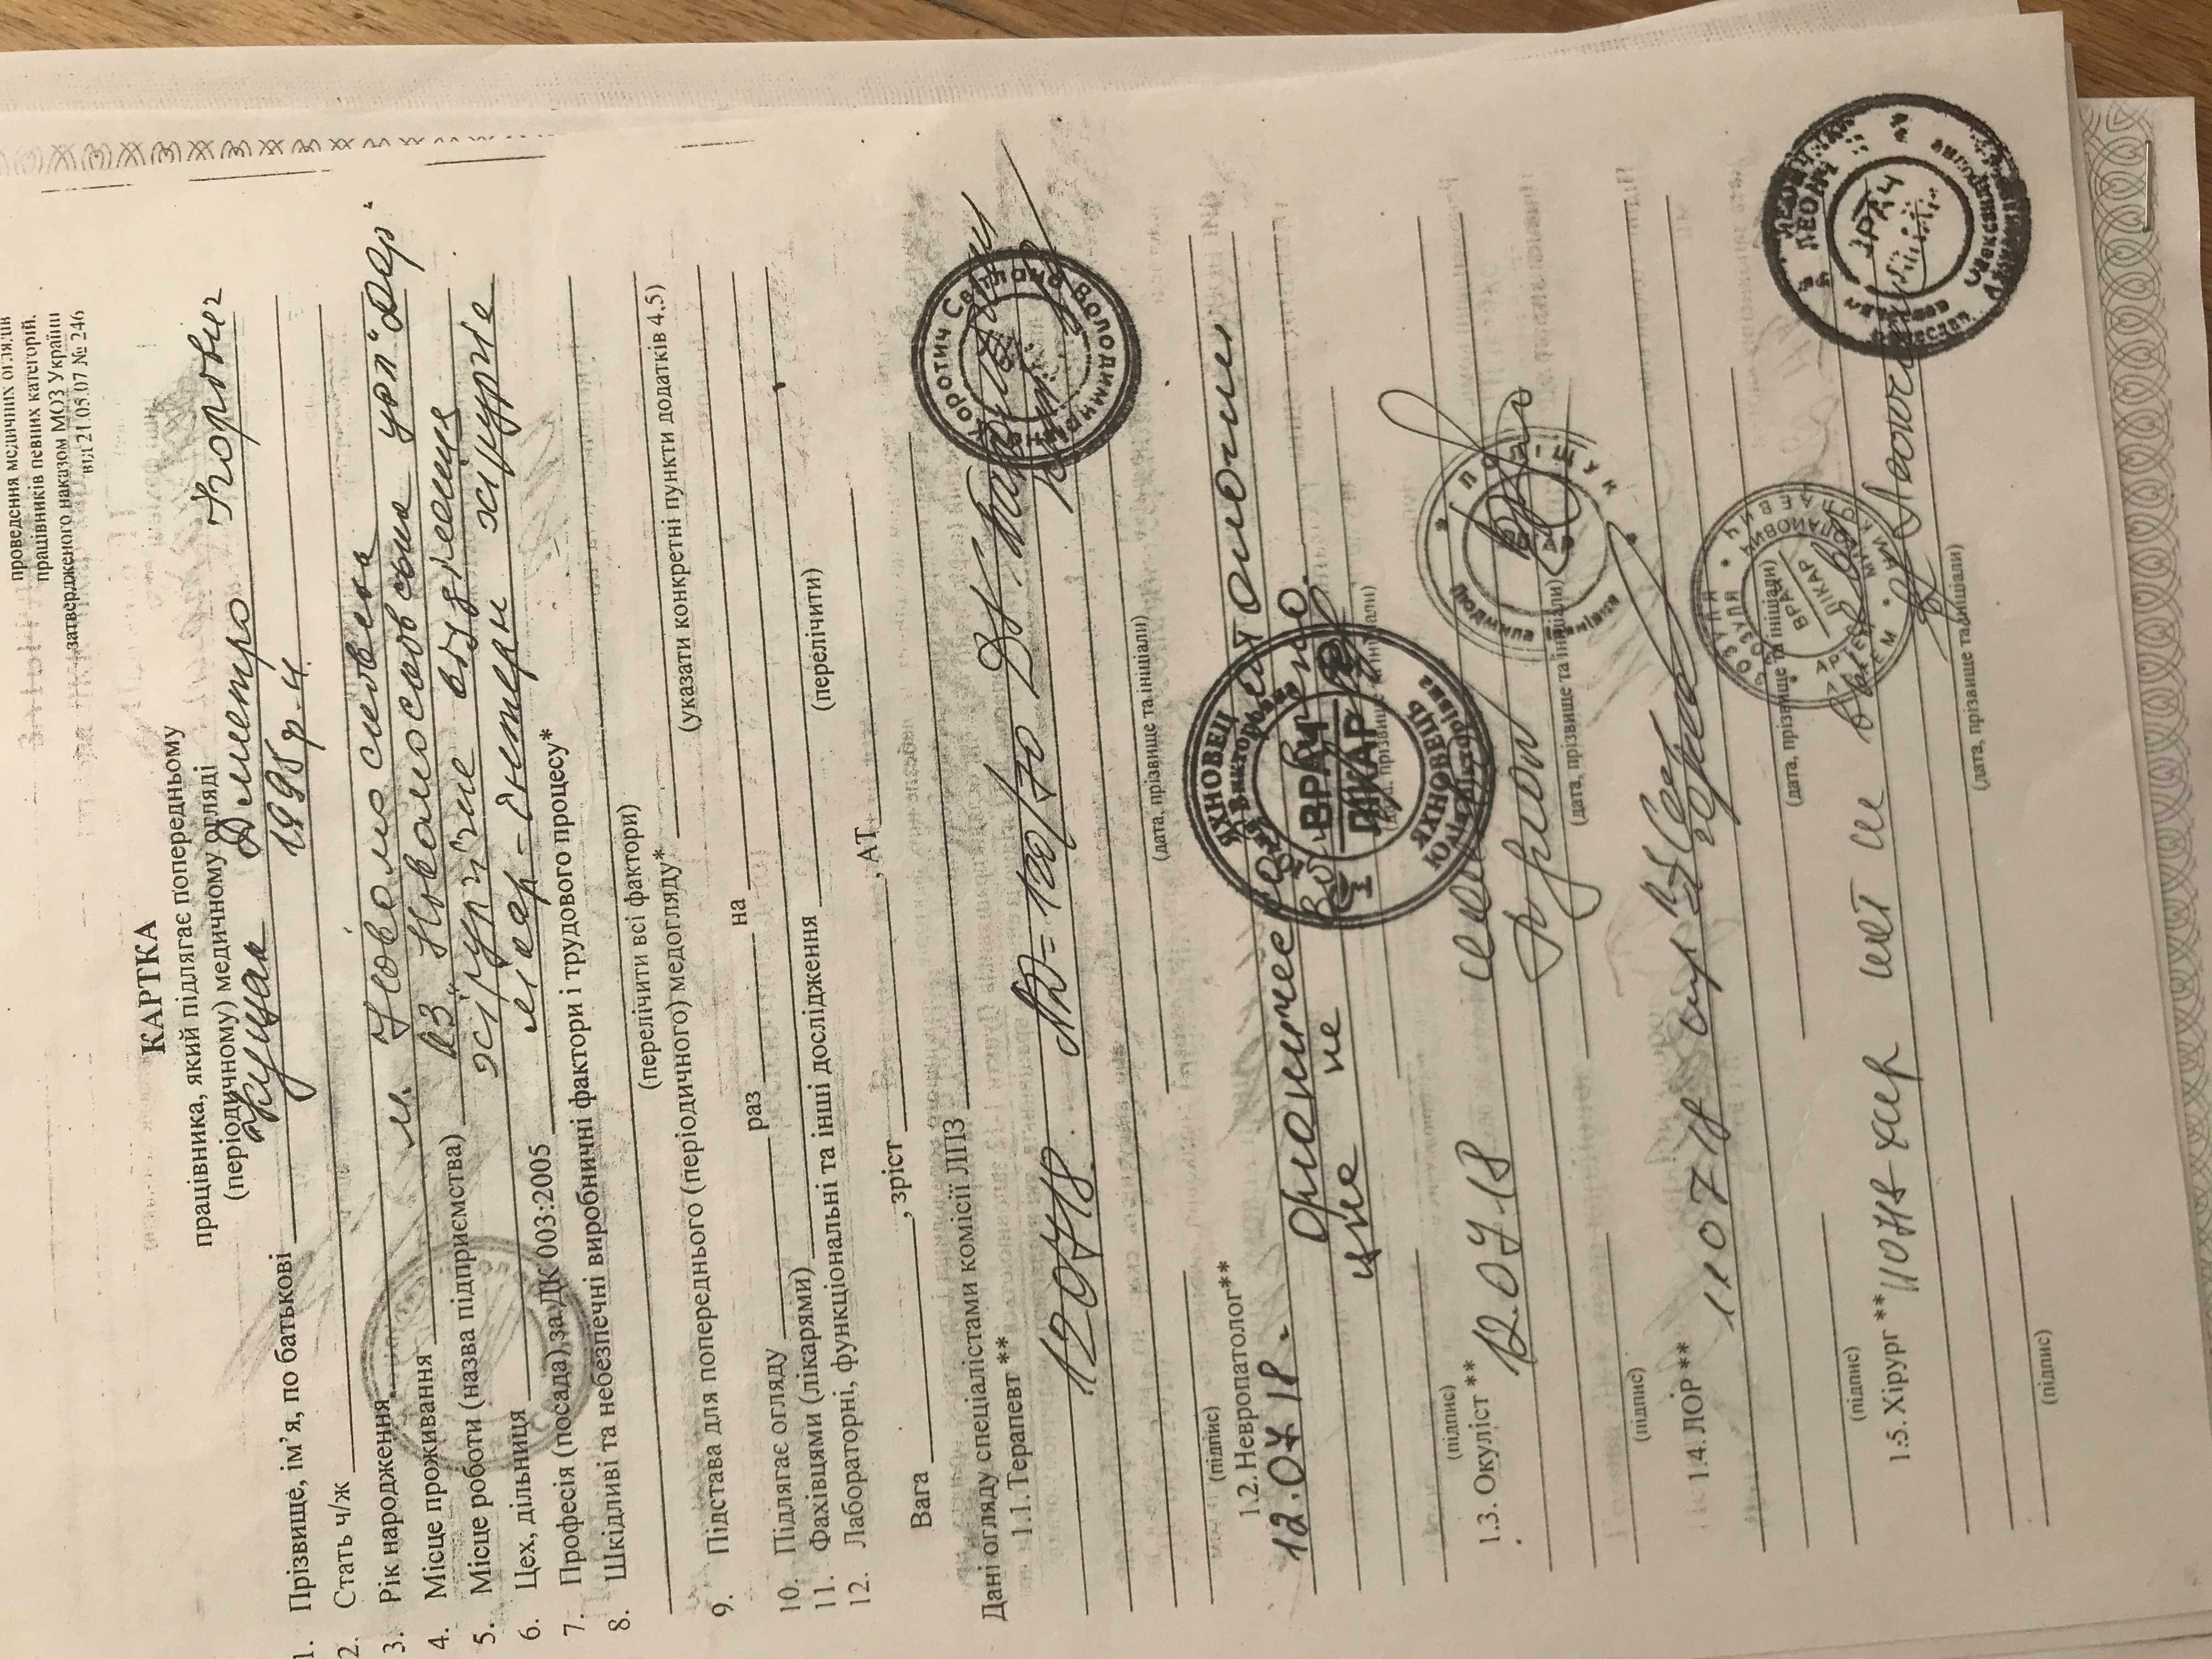 проведення медичних оглядів
працівників певних категорій,
затвердженого наказом МОЗ України
від 21.05.07 № 246
КАРТКА
працівника, який підлягає попередньому
(періодичному) медичному огляді
1. Прізвище, ім’я, по батькові Кущак Дмитро Ігорович
1995 р.н.
2. Стать ч/ж
3. Рік народження
4. Місце проживання м. Новомосковськ
5. Місце роботи (назва підприємства) КЗ „Новомосковська ЦРЛ" ДОР"
6. Цех, дільниця хірургічне відділення
7. Професія (посада) за ДК 003:2005 лікар-інтерн хірургія
8. Шкідливі та небезпечні виробничі фактори і трудового процесу*
(перелічити всі фактори)
9. Підстава для попереднього (періодичного) медогляду*
(указати конкретні пункти додатків 4,5)
10. Підлягає огляду раз на
11. Фахівцями (лікарями)
12. Лабораторні, функціональні та інші дослідження
(перелічити)
Вага , зріст , АТ
Дані огляду спеціалістами комісії ЛПЗ
1.1. Терапевт **
120718. АД= 120/70
Коротич Світлана Володимирівна
(дата, прізвище та ініціали)
(підпис)
1.2. Невропатолог**
12.07.18. органической патологии
цнс не выявлено.
ЯХНОВЕЦ Юлия Викторовна
ВРАЧ
ЛІКАР
ЯХНОВЕЦЬ Юлія Вікторівна
(дата, прізвище та ініціали)
(підпис)
1.3. Окуліст ** 12.07.18
ПОЛІЩУК
(дата, прізвище та ініціали)
(підпис)
1.4. ЛОР ** 110718
ЗОЗУЛЯ
АРТЕМ
ВРАЧ
ЛІКАР
(дата, прізвище та ініціали)
(підпис)
1.5. Хірург ** 110718 хир
ВРАЧ
(дата, прізвище та ініціали)
(підпис)